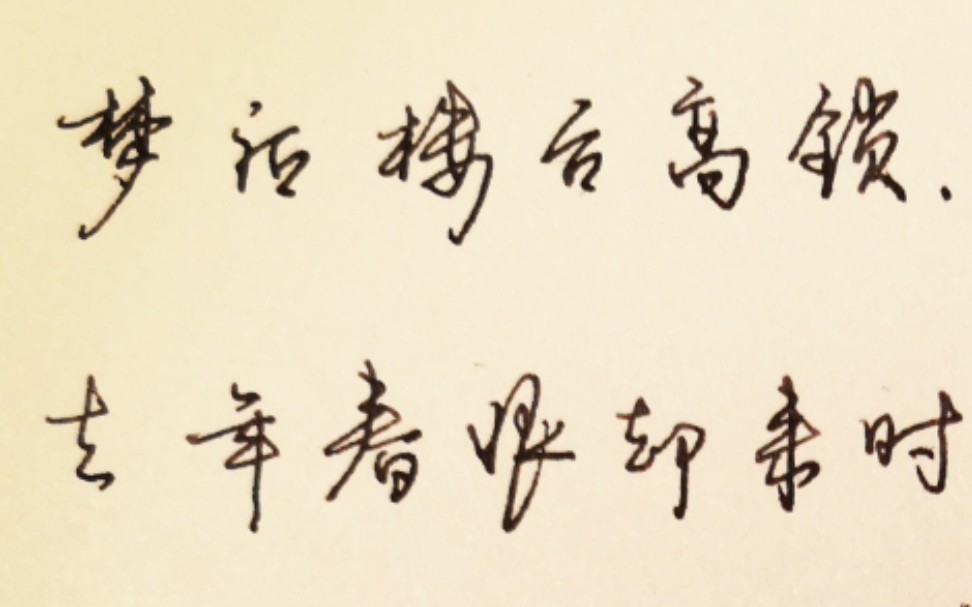 梦后楼台高锁.
去年春恨却来时